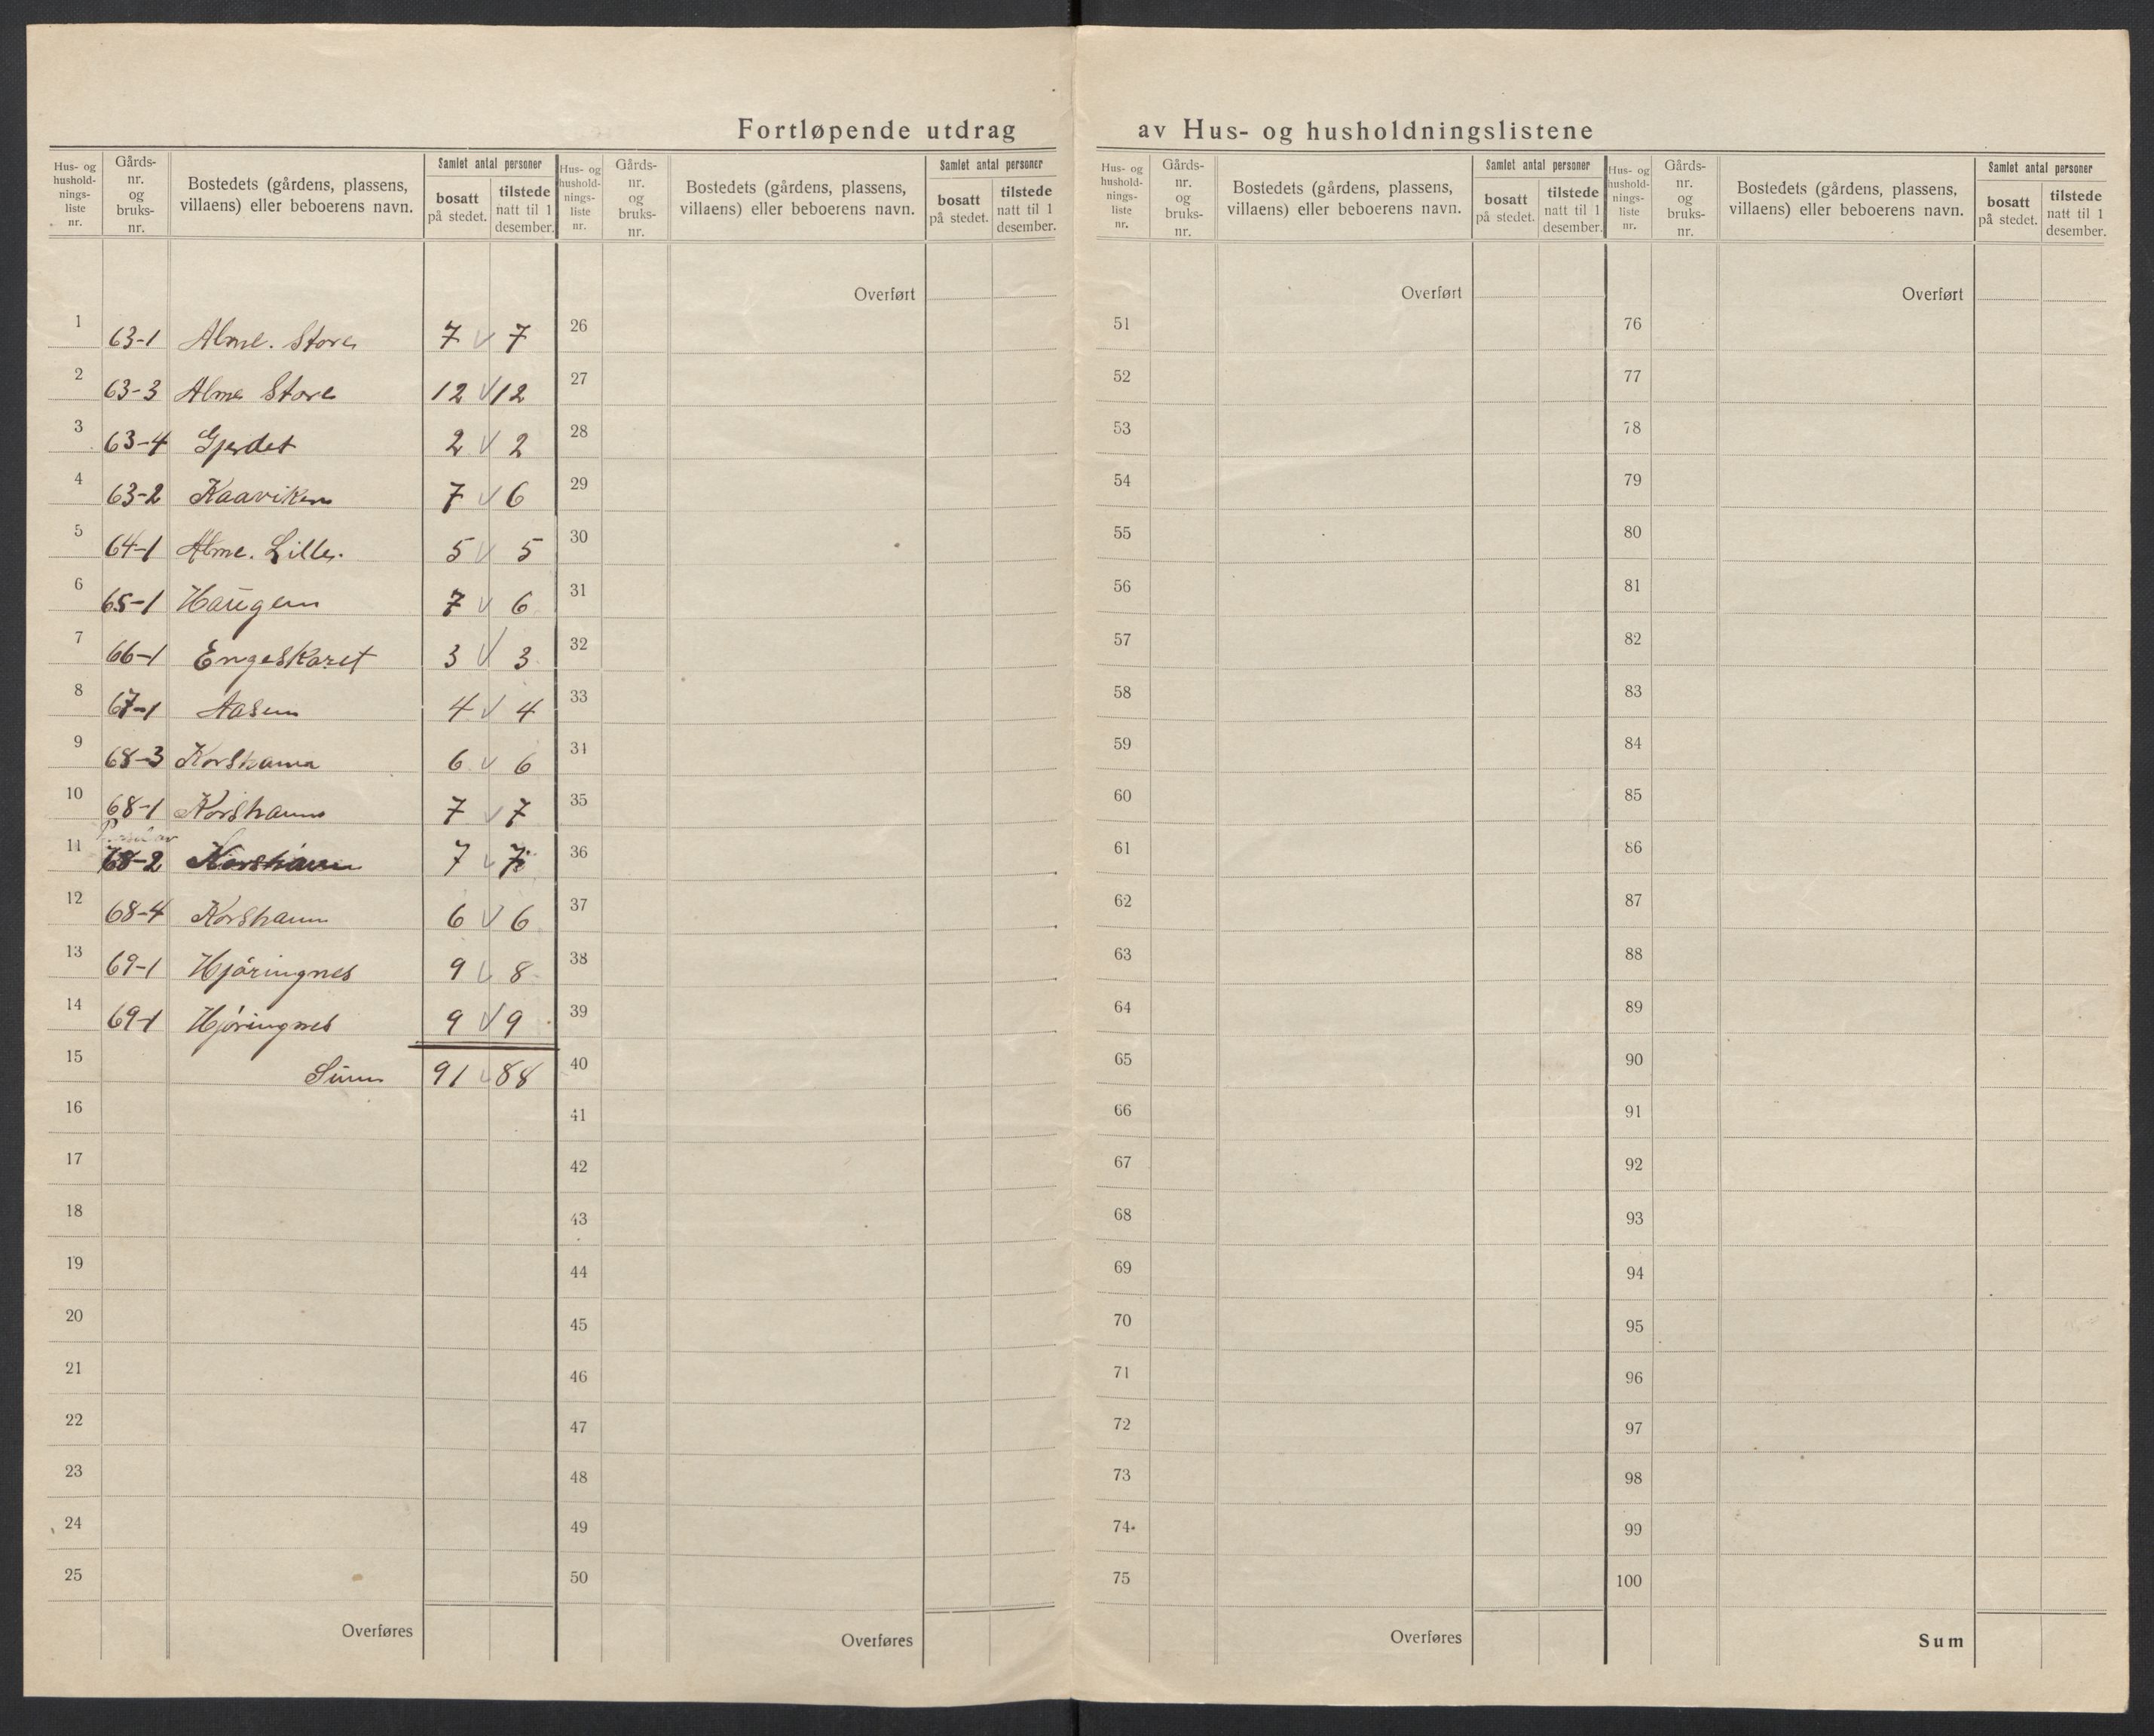 Fortløpende utdrag av Hus- og husholdningslistene
Hus- og hushold-nings-liste nr. Gårds-nr. og bruks-nr. Bostedets (gårdens, plassens, villaens) eller beboerens navn. Samlet antal personer bosatt på stedet. tilstede natt til 1 desember.
Hus- og hushold-nings-liste nr. Gårds-nr. og bruks-nr. Bostedets (gårdens, plassens, villaens) eller beboerens navn. Samlet antal personer bosatt på stedet. tilstede natt til 1 desember.
Hus- og hushold-nings-liste nr. Gårds-nr. og bruks-nr. Bostedets (gårdens, plassens, villaens) eller beboerens navn. Samlet antal personer bosatt på stedet. tilstede natt til 1 desember.
Hus- og hushold-nings-liste nr. Gårds-nr. og bruks-nr. Bostedets (gårdens, plassens, villaens) eller beboerens navn. Samlet antal personer bosatt på stedet. tilstede natt til 1 desember.
1 63-1 Alme. Store 7 7
2 63-3 Alme Store 12 12
3 63-4 Gjerdet 2 2
4 63-2 Kaaviken 7 6
5 64-1 Alme. Lille. 5 5
6 65-1 Haugen 7 6
7 66-1 Engeskaret 3 3
8 67-1 Aasen 4 4
9 68-3 Korshavn 6 6
10 68-1 Korshavn 7 7
11 68-2 Korshavn 7 7
12 68-4 Korshavn 6 6
13 69-1 Hjøringnes 9 8
14 69-1 Hjøringnes 9 9
15 Sum 91 88
16
17
18
19
20
21
22
23
24
25
Overføres
Overført
26
27
28
29
30
31
32
33
34
35
36
37
38
39
40
41
42
43
44
45
46
47
48
49
50
Overføres
Overført
51
52
53
54
55
56
57
58
59
60
61
62
63
64
65
66
67
68
69
70
71
72
73
74
75
Overføres
Overført
76
77
78
79
80
81
82
83
84
85
86
87
88
89
90
91
92
93
94
95
96
97
98
99
100
Sum